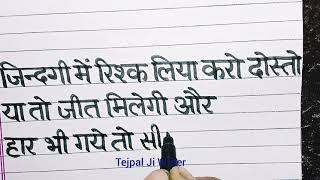 जिन्दगी में रिश्क लिया करो दोस्तो
या तो जीत मिलेगी और
हार भी गये तो सी
Tejpal Ji